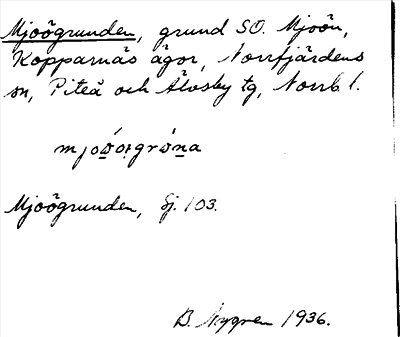 Mjoögrunden, grund SO. Mjoön,
Kopparnäs ägor, Norrfjärdens
sn, Piteå och Älvsby tg, Norrb l.
Mjoögrunden, Sj. 103.
B. Nygren 1936.